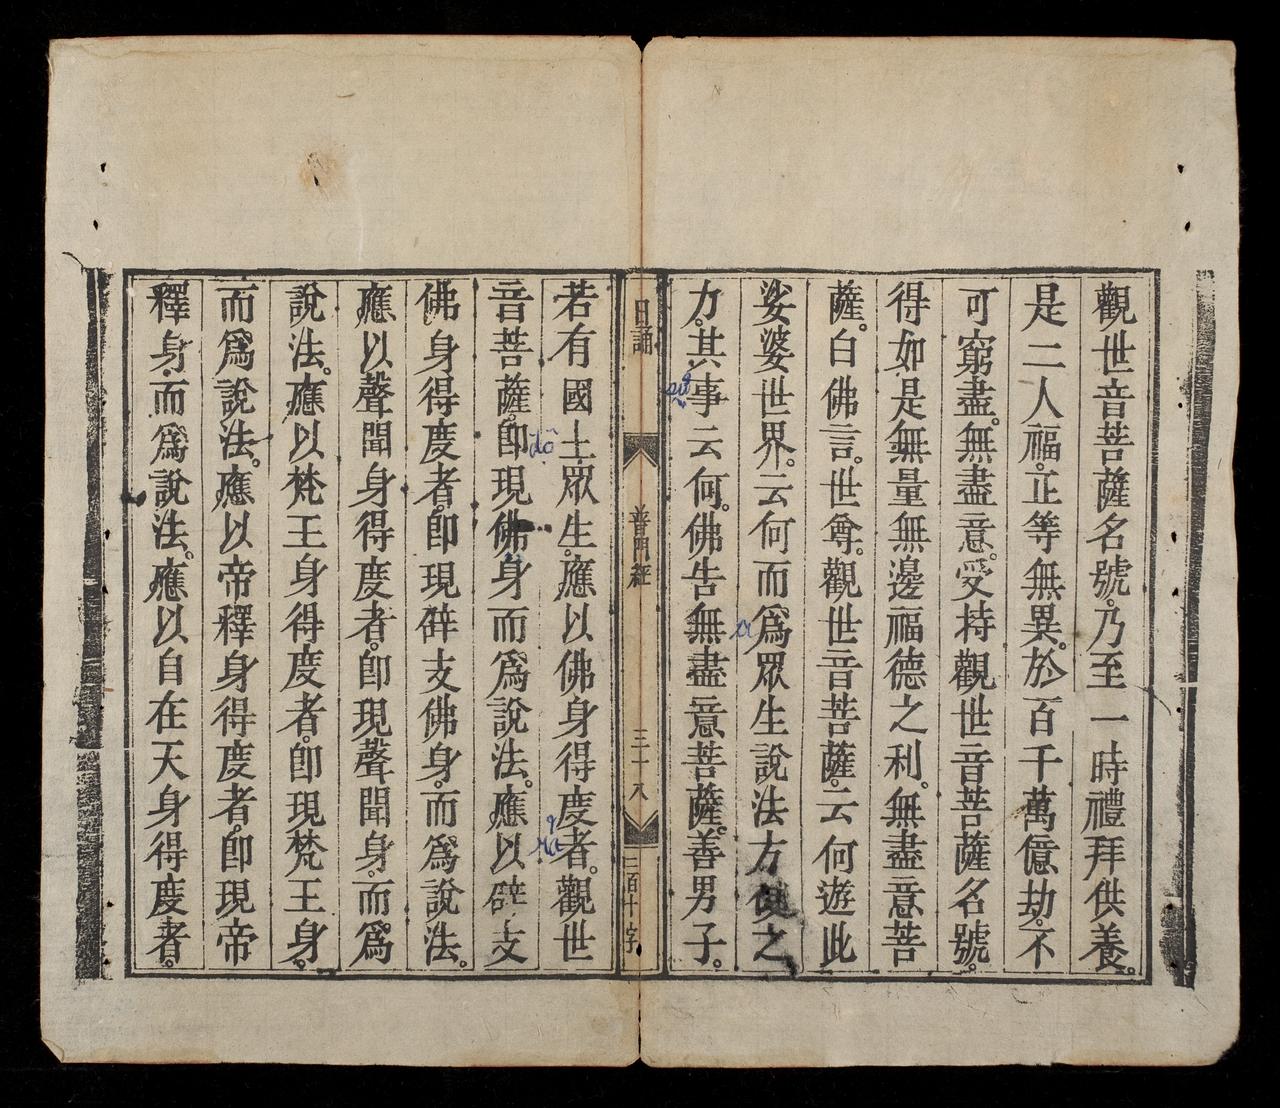 觀世音菩薩名號。乃至一時禮拜供養。
是二人福。正等無異。於百千萬億劫。不
可窮盡。無盡意。受持觀世音菩薩名號。
得如是無量無邊福德之利。無盡意菩
薩。白佛言。世尊。觀世音菩薩。云何遊此
娑婆世界。云何而爲眾生說法。方便之
力。其事云何。佛告無盡意菩薩。善男子。
日誦
普門經
三十八
三百十字
若有國土眾生。應以佛身得度者。觀世
音菩薩。卽現佛身而爲說法。應以辟支
佛身得度者。卽現辟支佛身。而爲說法。
應以聲聞身得度者。卽現聲聞身。而爲
說法。應以梵王身得度者。卽現梵王身。
而爲說法。應以帝釋身得度者。卽現帝
釋身。而爲說法。應以自在天身得度者。
độ